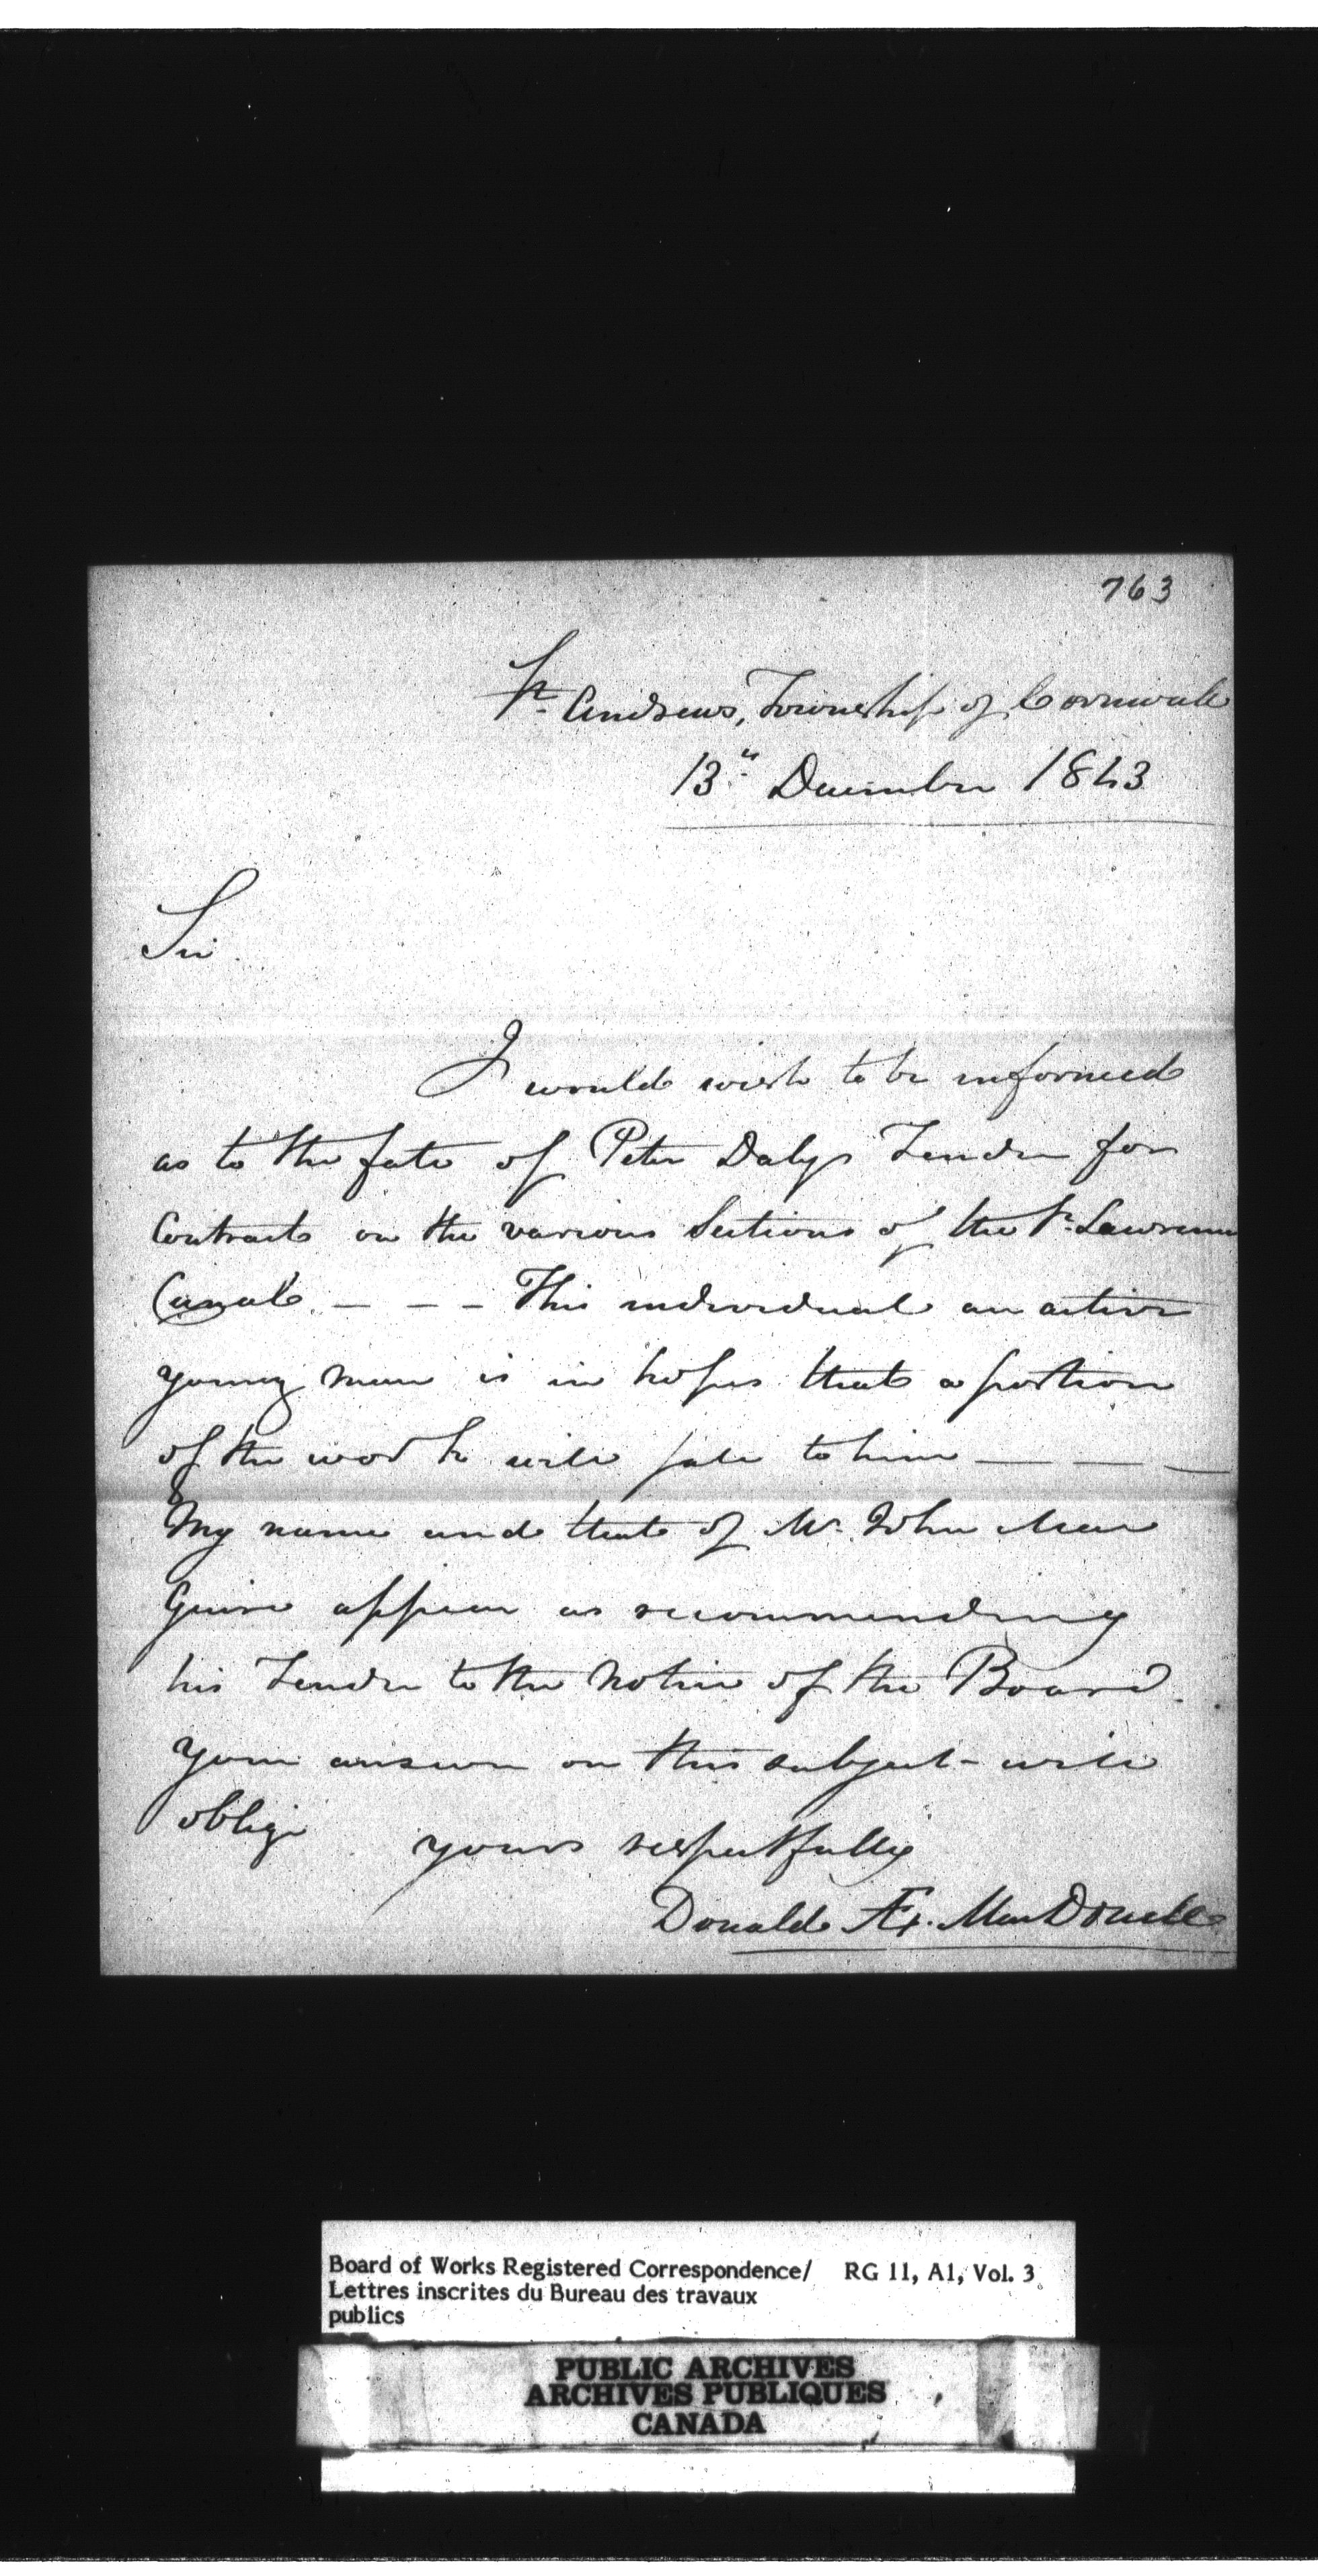 763
St. Andrews, Township of Cornwall
13th December 1843
Sir
I would wish to be informed
as to the fate of Peter Dalys Tender for
Contracts on the various Sections of the St. Lawrence
Canal. _ _ _ This individual an active
young man is in hopes that a portion
of the work will fall to him _ _ _
My name and that of Mr. John Mac
Guire appear as recommending
his Tender to the notice of the Board.
your answer on this subject will
oblige yours respectfully
Donald Æ. MacDonell
Board of Works Registered Correspondence/ RG 11, A1, Vol. 3
Lettres inscrites du Bureau des travaux
publics
PUBLIC ARCHIVES
ARCHIVES PUBLIQUES
CANADA